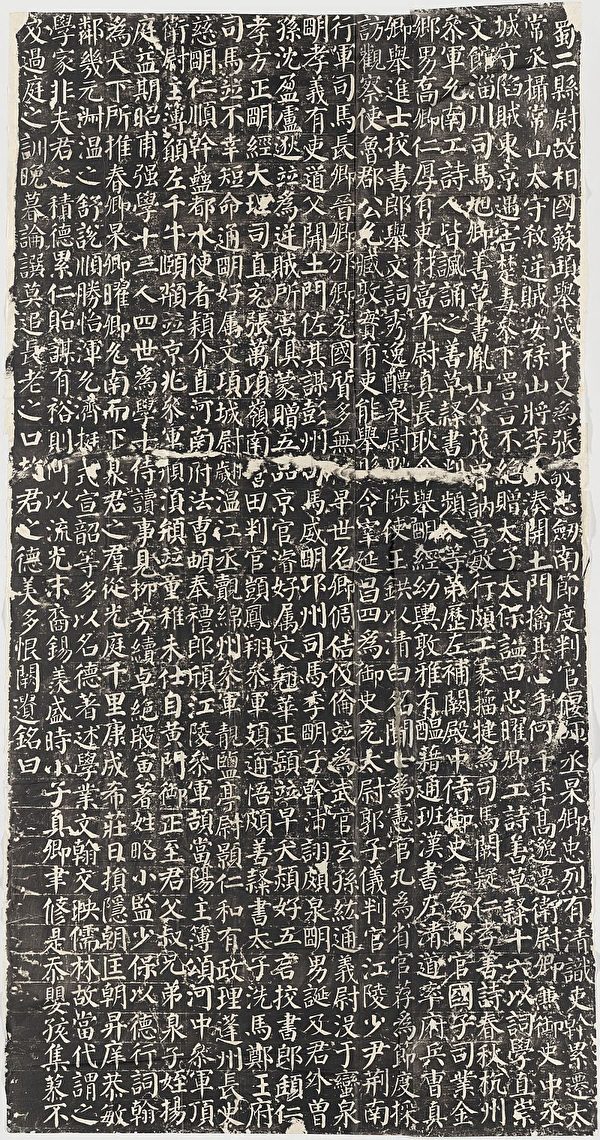 蜀二縣尉故相國蘇頲舉茂才又為張敬忠劍南節度判官偃師丞杲卿忠烈有清識吏幹累遷太
常丞攝常山太守殺逆賊安祿山將李欽湊開土門擒其心手何千秊高邈遷衛尉卿兼御史中丞
城守陷賊東京遇害楚毒叅下詈言不絕贈太子太保諡曰忠曜卿工詩善草隸十六以詞學直崇
文館淄川司馬旭卿善草書胤山令茂曾訥言敏行頗工篆籀犍為司馬闕疑仁孝善詩春秋杭州
叅軍允南工詩人皆諷誦之善草隸書判頻入等第歷左補闕殿中侍御史三為郎官國子司業金
鄉男喬卿仁厚有吏材富平尉真長耿介舉明經幼輿敦雅有醞藉通班漢書左清道率府兵曹真
卿舉進士挍書郎舉文詞秀逸醴泉尉黜陟使王鉷以清白名聞七為憲官九為省官荐為節度採
訪觀察使魯郡公允臧敦實有吏能舉縣令宰延昌四為御史充太尉郭子儀判官江陵少尹荊南
行軍司馬長卿晉卿邠卿充國質多無祿早世名卿倜佶伋倫竝為武官玄孫紘通義尉沒于蠻泉
明孝義有吏道父開土門佐其謀彭州司馬威明邛州司馬季明子幹沛詡頗泉明男誕及君外曾
孫沈盈盧逖竝為逆賊所害俱蒙贈五品京官濬好属文翹華正顗竝早夭頍好五言挍書郎頲仁
孝方正明經大理司直充張萬頃嶺南營田判官顗鳳翔叅軍頍通悟頗善隸書太子洗馬鄭王府
司馬竝不幸短命通明好属文項城尉翽溫江丞覿綿州叅軍靚鹽亭尉顥仁和有政理蓬州長史
慈明仁順幹蠱都水使者潁介直河南府法曹頔奉禮郎頎江陵叅軍頡當陽主簿頌河中叅軍頂
衛尉主簿願左千牛頤頵竝京兆叅軍須頠竝童稚未仕自黃門御正至君父叔兄弟泉子姪揚
庭益期昭甫強學十三人四世為學士侍讀事見柳芳續卓絕殷寅著姓略小監少保以德行詞翰
為天下所推春卿杲卿曜卿允南而下泉君之羣從光庭千里康成希莊日損隱朝匡朝昇庠恭敏
鄰幾元淑溫之舒說順勝怡渾允濟挺式宣韶等多以名德著述學業文翰交映儒林故當代謂之
學家非夫君之積德累仁貽謀有裕則何以流光末裔錫羨盛時小子真卿聿脩是忝嬰孩集蓼不
及過庭之訓晚暮論譔莫追長老之口故君之德美多恨闕遺銘曰